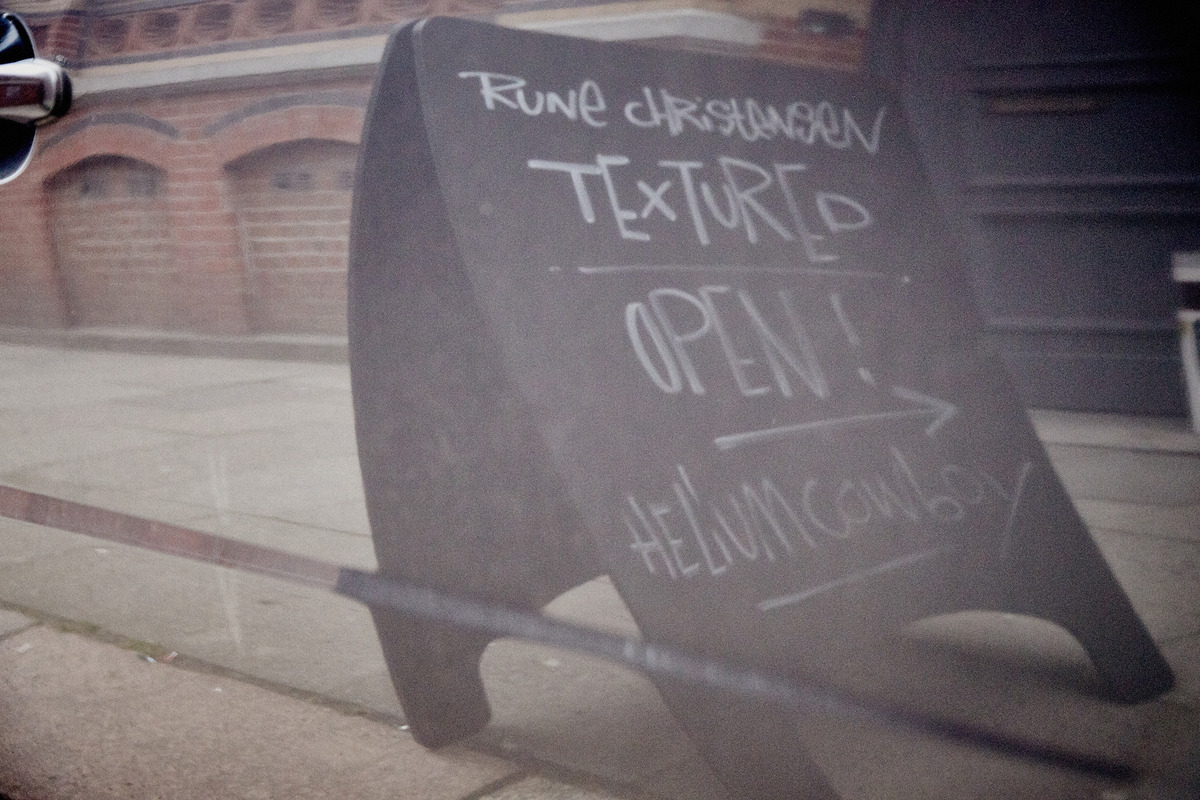 RUNE CHRISTENSEN
TEXTURED
OPEN!
HELIUMCOWBOY